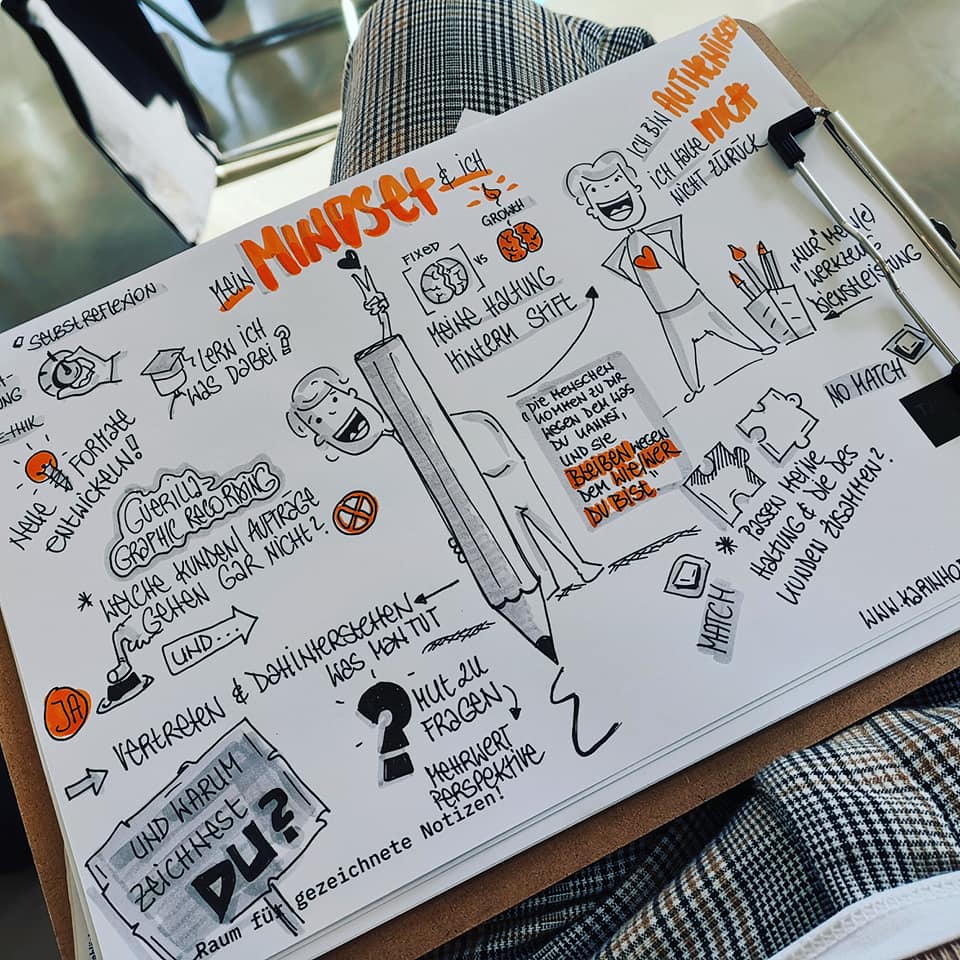 MEIN MINDSET & ICH
FIXED
VS
GROWTH
MEINE HALTUNG
HINTERM STIFT
ICH BIN AUTHENTISCH
ICH HALTE MICH
NICHT ZURÜCK
"NUR" MEIN(E)
WERKZEUG
DIENSTLEISTUNG
SELBSTREFLEXION
ETHIK
LERN ICH
WAS DABEI?
NEUE FORMATE
ENTWICKELN!
GUERILLA-
GRAPHIC RECORDING
* WELCHE KUNDEN/AUFTRÄGE
GEHEN GAR NICHT?
UND...
JA
VERTRETEN & DAHINTERSTEHEN
WAS MAN TUT
"DIE MENSCHEN
KOMMEN ZU DIR
WEGEN DEM WAS
DU KANNST,
UND SIE
BLEIBEN WEGEN
DEM WIE/WER
DU BIST."
NO MATCH
* PASSEN MEINE
HALTUNG & DIE DES
KUNDEN ZUSAMMEN?
MATCH
?
MUT ZU
FRAGEN
MEHRWERT
PERSPEKTIVE
UND WARUM
ZEICHNEST
DU?
Raum für gezeichnete Notizen!